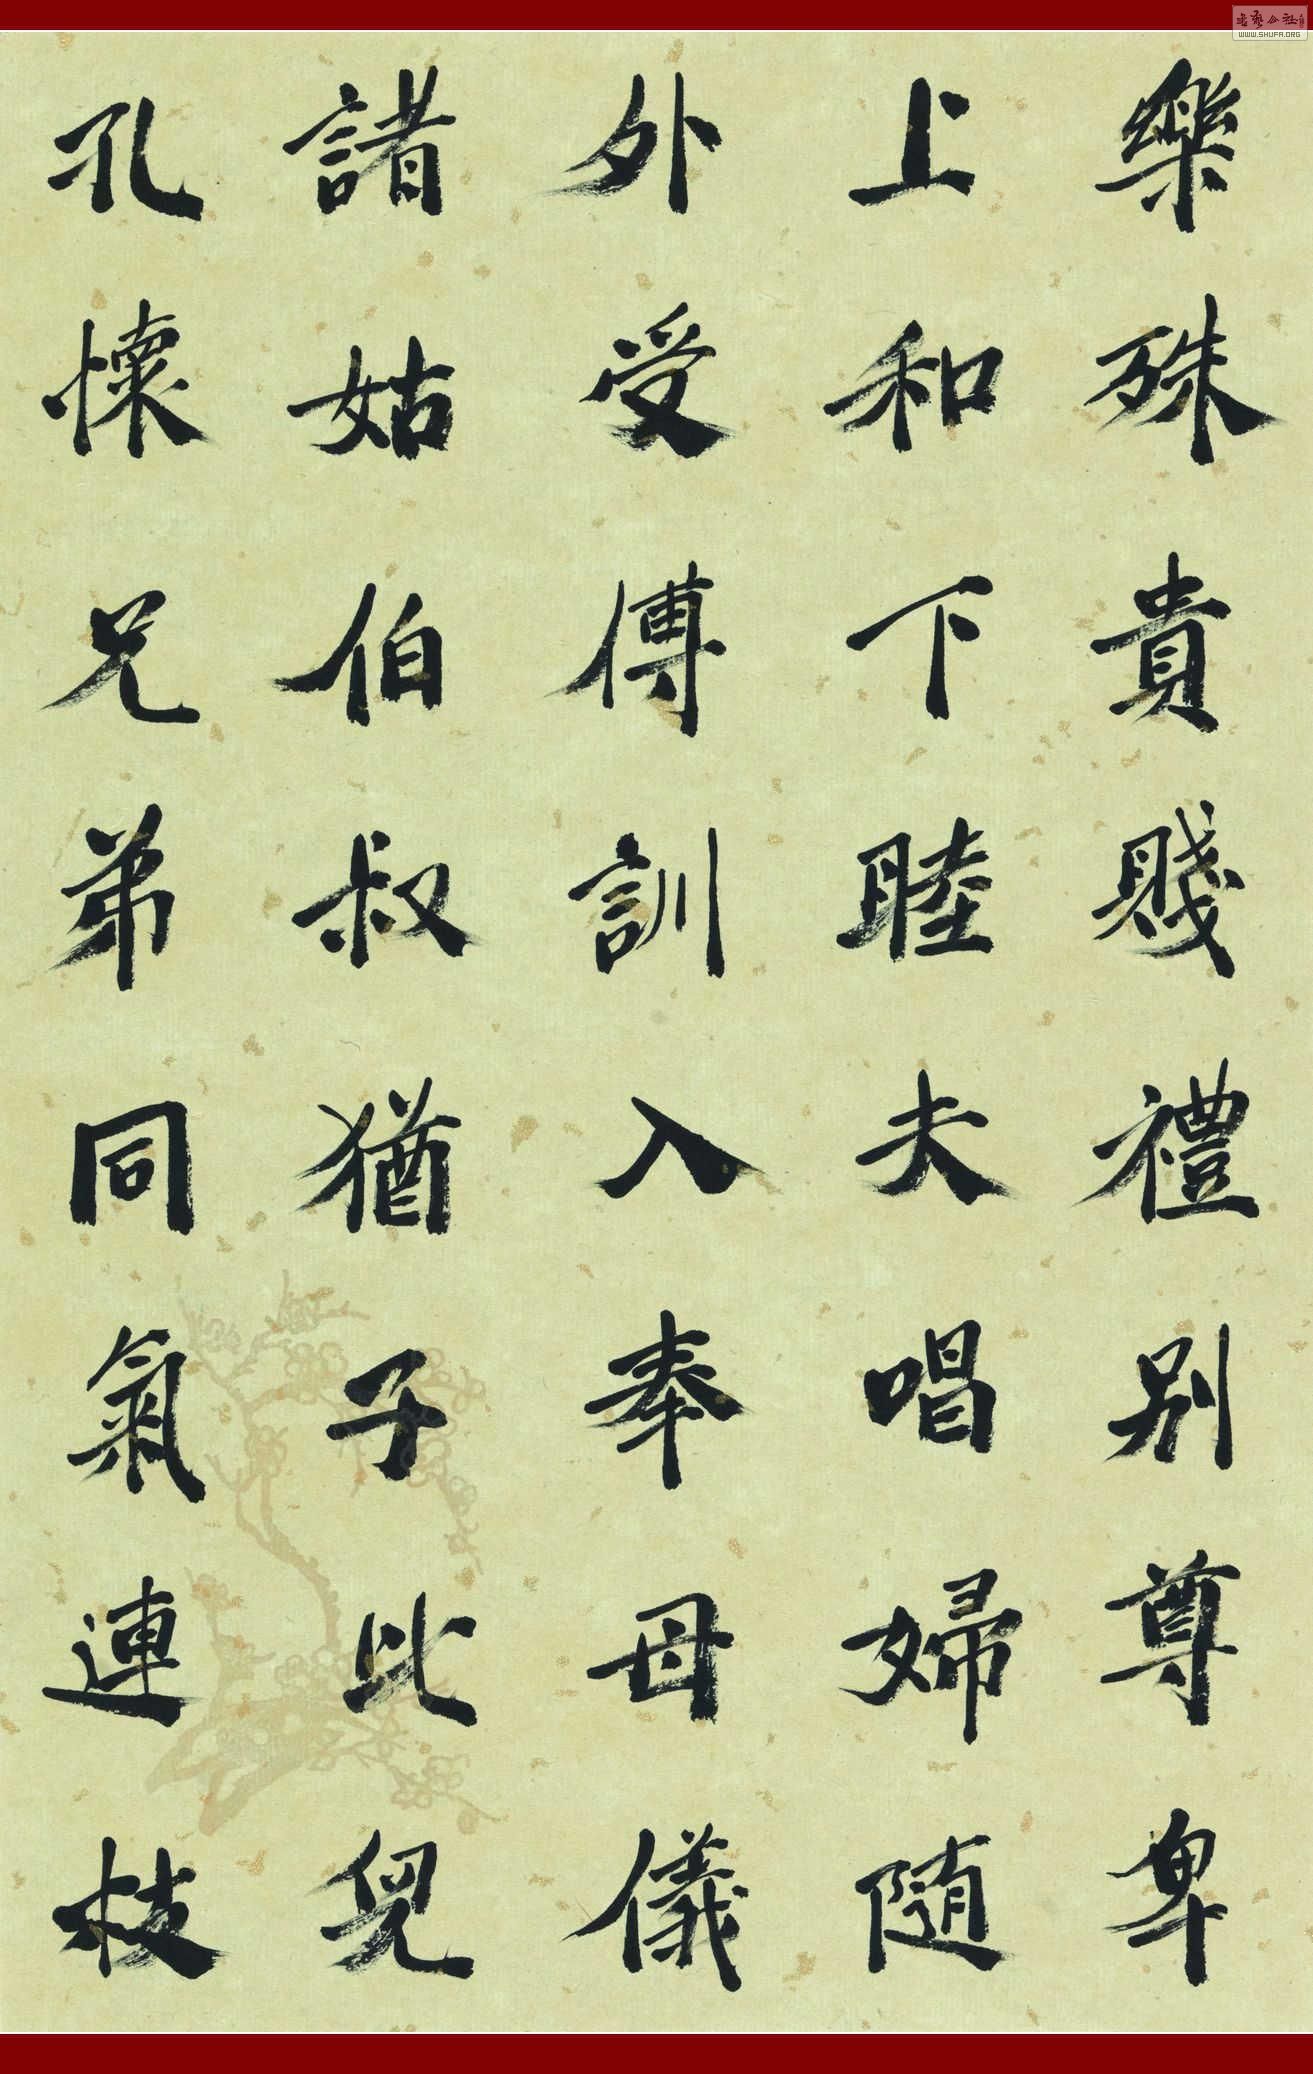 樂殊貴賤禮别尊卑
上和下睦夫唱婦隨
外受傅訓入奉母儀
諸姑伯叔猶子比兒
孔懷兄弟同氣連枝
WWW.SHUFA.ORG